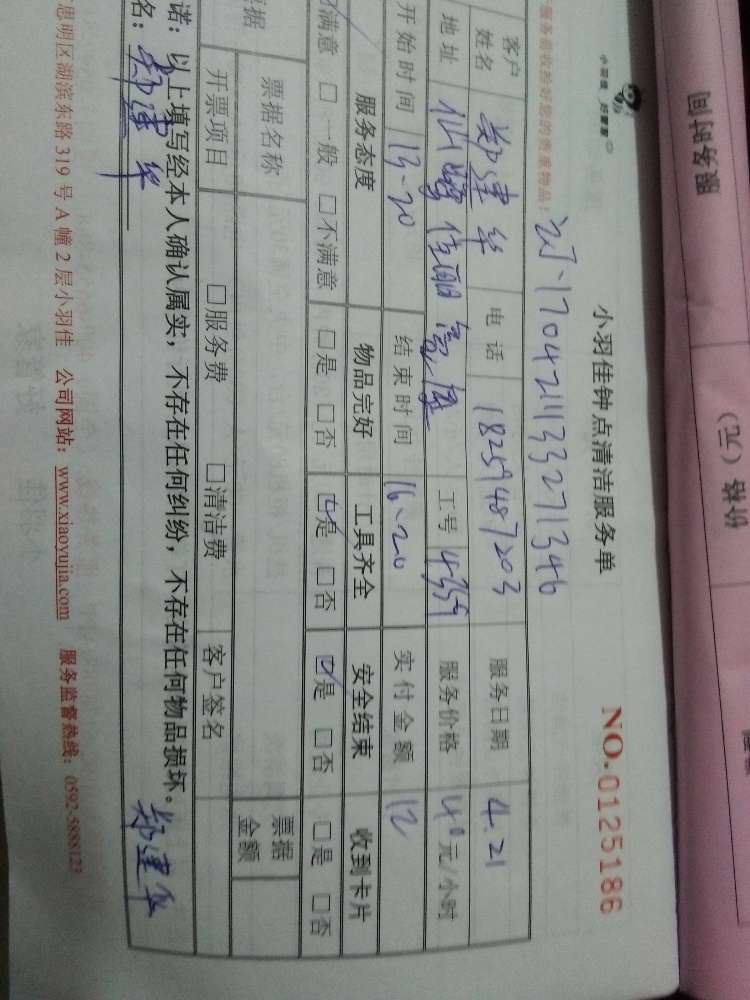 服务时间
价格（元）
小羽佳 好管家
小羽佳钟点清洁服务单
NO.0125186
服务前收拾好您的贵重物品！
XJ.1704211133271346
客户姓名 郑建华 电话 18259487203 服务日期 4.21
地址 仙鹭佳丽高层 工号 4359 服务价格 40元/小时
开始时间 13-20 结束时间 16-20 实付金额 12
服务态度 物品完好 工具齐全 安全结束 收到卡片
满意 □一般 □不满意 □是 □否 ☑是 □否 ☑是 □否 □是 □否
票据 票据名称 票据金额
开票项目 □服务费 □清洁费 客户签名
诺：以上填写经本人确认属实，不存在任何纠纷，不存在任何物品损坏。
名：郑建华 郑建华
思明区湖滨东路319号A幢2层小羽佳 公司网站：www.xiaoyujia.com 服务监督热线：0592-5888123